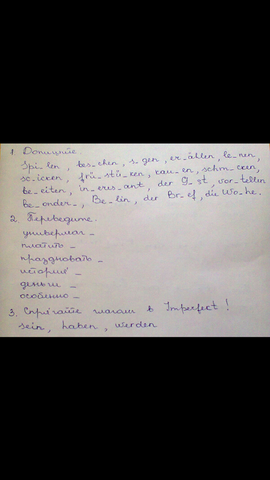 1. Допишите.
Spi_len, bes_chen, s_gen, er_ählen, le_nen,
sc_icken, frü_stü_ken, kau_en, schm_cken,
be_eiten, in_eres_ant, der G_st, vor_tellen
be_onder_, Be_lin, der Br_ef, die Wo_he.
2. Переведите.
универмаг _
платить _
праздновать _
история _
деньги _
особенно _
3. Спрягайте глаголы в Imperfekt!
sein, haben, werden